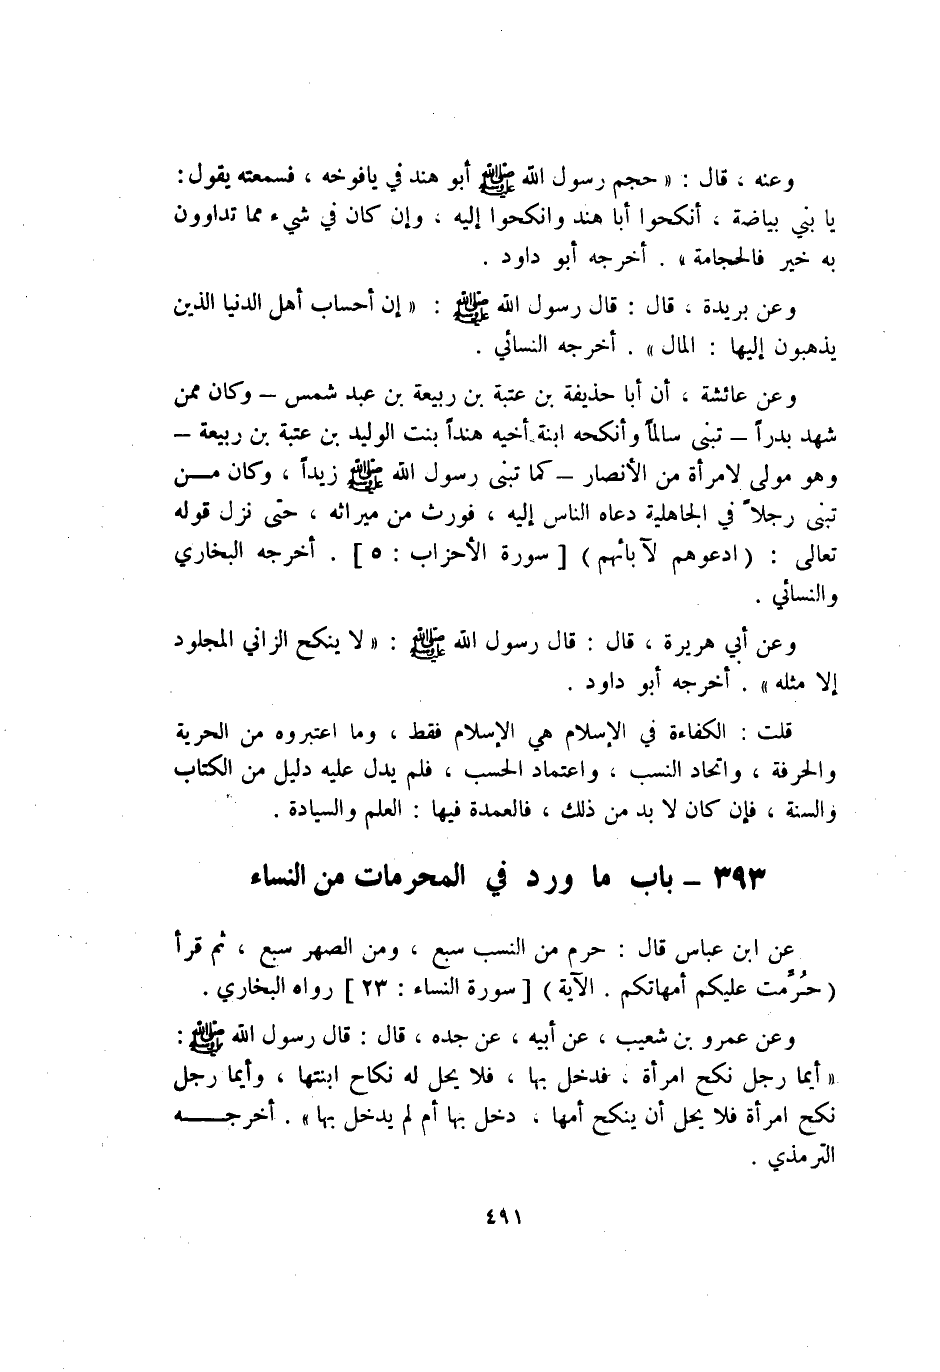 وعنه ، قال : « حجم رسول الله ﷺ أبو هند في يافوخه ، فسمعته يقول :
يا بني بياضة ، أنكحوا أبا هند وانكحوا إليه ، وإن كان في شيء مما تداوون
به خير فالحجامة » . أخرجه أبو داود .
وعن بريدة ، قال : قال رسول الله ﷺ : « إن أحساب أهل الدنيا الذين
يذهبون إليها : المال » . أخرجه النسائي .
وعن عائشة ، أن أبا حذيفة بن عتبة بن ربيعة بن عبد شمس – وكان ممن
شهد بدراً – تبنى سالماً وأنكحه ابنة أخيه هنداً بنت الوليد بن عتبة بن ربيعة –
وهو مولى لامرأة من الأنصار – كما تبنى رسول الله ﷺ زيداً ، وكان مـــن
تبنى رجلاً في الجاهلية دعاه الناس إليه ، فورث من ميراثه ، حتى نزل قوله
تعالى : ( ادعوهم لآبائهم ) [ سورة الأحزاب : ٥ ] . أخرجه البخاري
والنسائي .
وعن أبي هريرة ، قال : قال رسول الله ﷺ : « لا ينكح الزاني المجلود
إلا مثله » . أخرجه أبو داود .
قلت : الكفاءة في الإسلام هي الإسلام فقط ، وما اعتبروه من الحرية
والحرفة ، واتحاد النسب ، واعتماد الحسب ، فلم يدل عليه دليل من الكتاب
والسنة ، فإن كان لا بد من ذلك ، فالعمدة فيها : العلم والسيادة .
٣٩٣ – باب ما ورد في المحرمات من النساء
عن ابن عباس قال : حرم من النسب سبع ، ومن الصهر سبع ، ثم قرأ
( حُرِّمت عليكم أمهاتكم . الآية ) [ سورة النساء : ٢٣ ] رواه البخاري .
وعن عمرو بن شعيب ، عن أبيه ، عن جده ، قال : قال رسول الله ﷺ :
« أيما رجل نكح امرأة ، فدخل بها ، فلا يحل له نكاح ابنتها ، وأيما رجل
نكح امرأة فلا يحل أن ينكح أمها ، دخل بها أم لم يدخل بها » . أخرجـــــه
الترمذي .
٤٩١